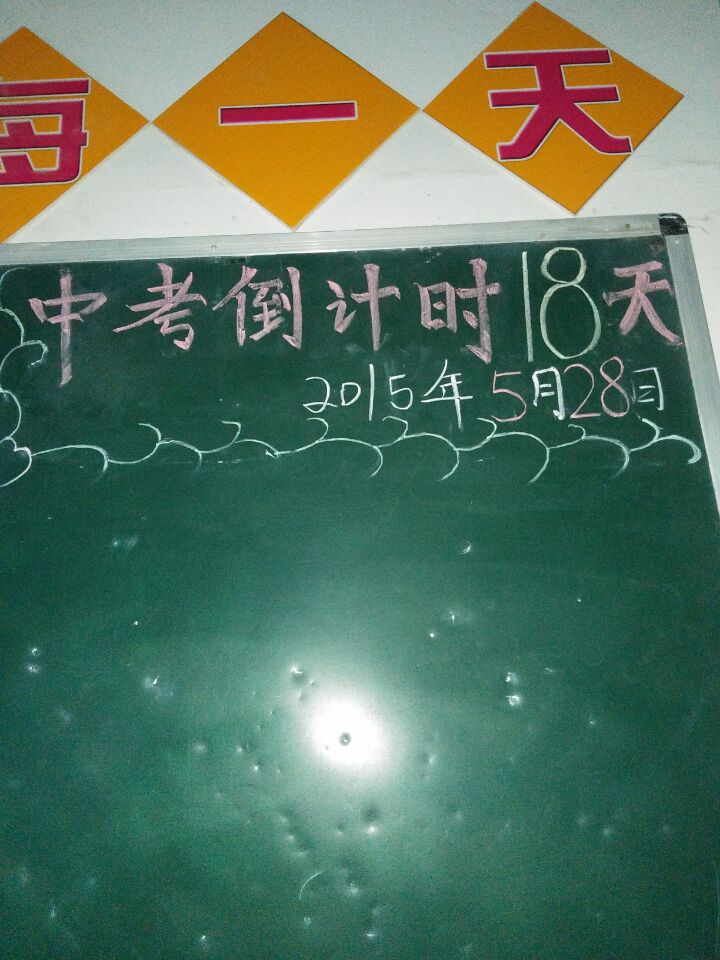 每一天
中考倒计时18天
2015年5月28日